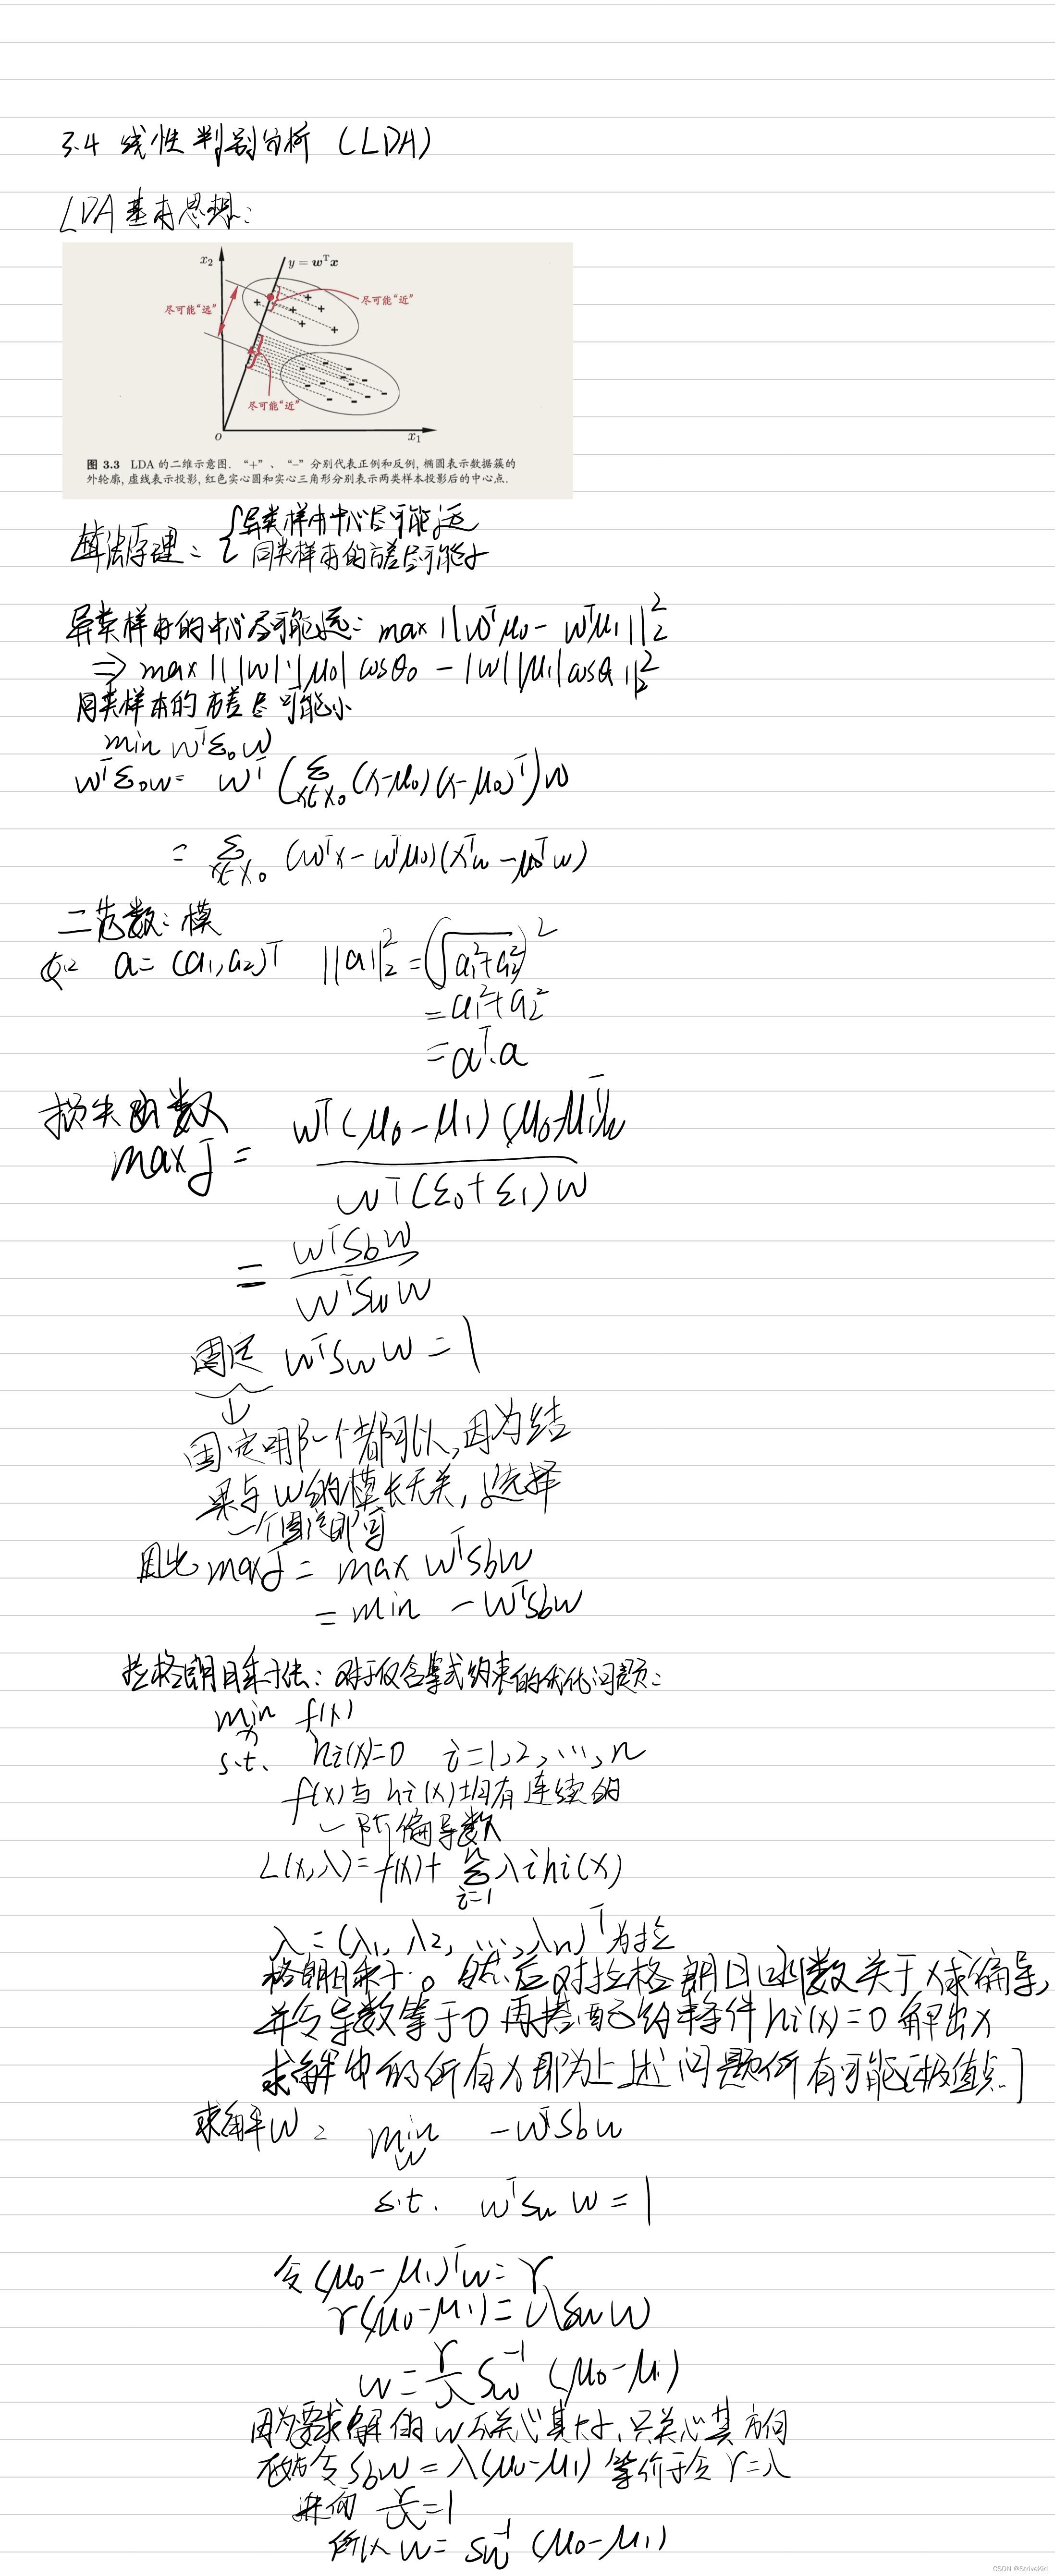 3.4 线性判别分析 (LDA)
LDA基本思想:
x₂
y = wᵀx
尽可能“远”
尽可能“近”
尽可能“近”
O
x₁
图 3.3 LDA 的二维示意图. “+”、 “−” 分别代表正例和反例, 椭圆表示数据簇的
外轮廓, 虚线表示投影, 红色实心圆和实心三角形分别表示两类样本投影后的中心点.
算法原理: { 异类样本中心尽可能远
同类样本的方差尽可能小
异类样本的中心尽可能远: max ||wᵀμ₀ − wᵀμ₁||₂²
⇒ max || |w|·|μ₀| cosθ₀ − |w||μ₁|cosθ₁||₂²
同类样本的方差尽可能小
min wᵀΣ₀w
wᵀΣ₀w = wᵀ(Σ_{x∈X₀} (x−μ₀)(x−μ₀)ᵀ)w
= Σ_{x∈X₀} (wᵀx − wᵀμ₀)(xᵀw − μ₀ᵀw)
二范数: 模
如: a = (a₁,a₂)ᵀ ||a||₂² = (√(a₁²+a₂²))²
= a₁²+a₂²
= aᵀ·a
损失函数
max J = wᵀ(μ₀−μ₁)(μ₀−μ₁)ᵀw / wᵀ(Σ₀+Σ₁)w
= wᵀSbw / wᵀSww
固定 wᵀSww = 1
↓
固定哪一个都可以,因为结
果与w的模长无关,选择
一个固定即可
因此 max J = max wᵀSbw
= min −wᵀSbw
拉格朗日乘子法: 对于仅含等式约束的优化问题:
min_x f(x)
s.t. hi(x)=0 i=1,2,…,n
f(x)与hi(x)均有连续的
一阶偏导数
L(x,λ)=f(x)+ Σ_{i=1}^{n} λihi(x)
λ=(λ₁, λ₂, …, λn)ᵀ为拉
格朗日乘子。然后对拉格朗日函数关于x求偏导,
并令导数等于0再搭配约束条件hi(x)=0解出x
求解中的所有x即为上述问题所有可能[极值点]
求解w: min_w −wᵀSbw
s.t. wᵀSww = 1
令(μ₀−μ₁)ᵀw=γ
γ(μ₀−μ₁)=λSww
w = γ/λ Sw⁻¹ (μ₀−μ₁)
因为要求解的w不关心其大小,只关心其方向
不妨令Sbw = λ(μ₀−μ₁) 等价于令γ=λ
进而 γ/λ=1
所以 w= Sw⁻¹ (μ₀−μ₁)
CSDN @StriveKid